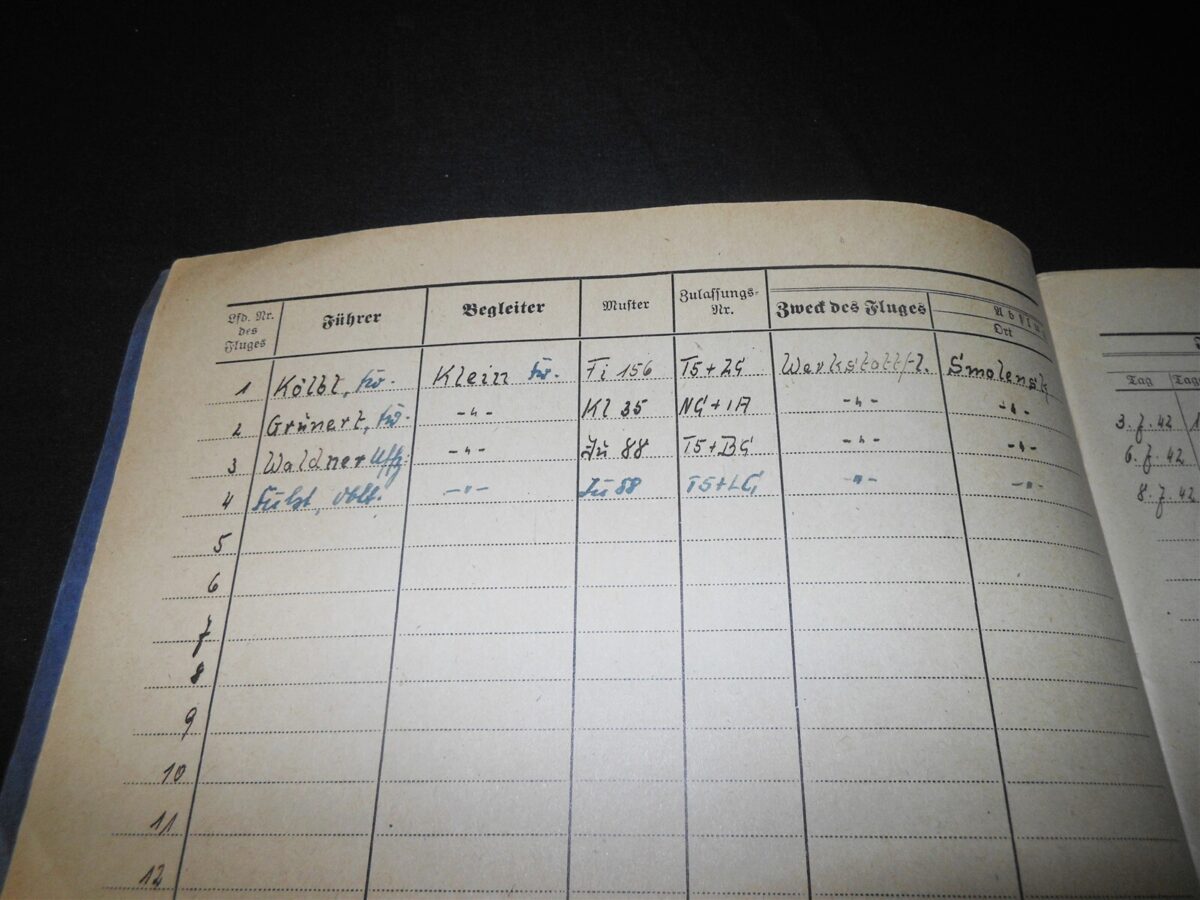 Lfd. Nr. des Fluges Führer Begleiter Muster Zulassungs-Nr. Zweck des Fluges Ort
Tag Tag
1 Kölbl, Klein Fi 156 T5+ZG Werkstattfl. Smolensk
2 Grünert, -"- Kl 35 NG+IA -"- -"- 3.7.42
3 Waldner Uffz. -"- Ju 88 T5+BG -"- -"- 6.7.42
4 Oblt. -"- Ju 88 T5+LG -"- -"- 8.7.42
5
6
7
8
9
10
11
12